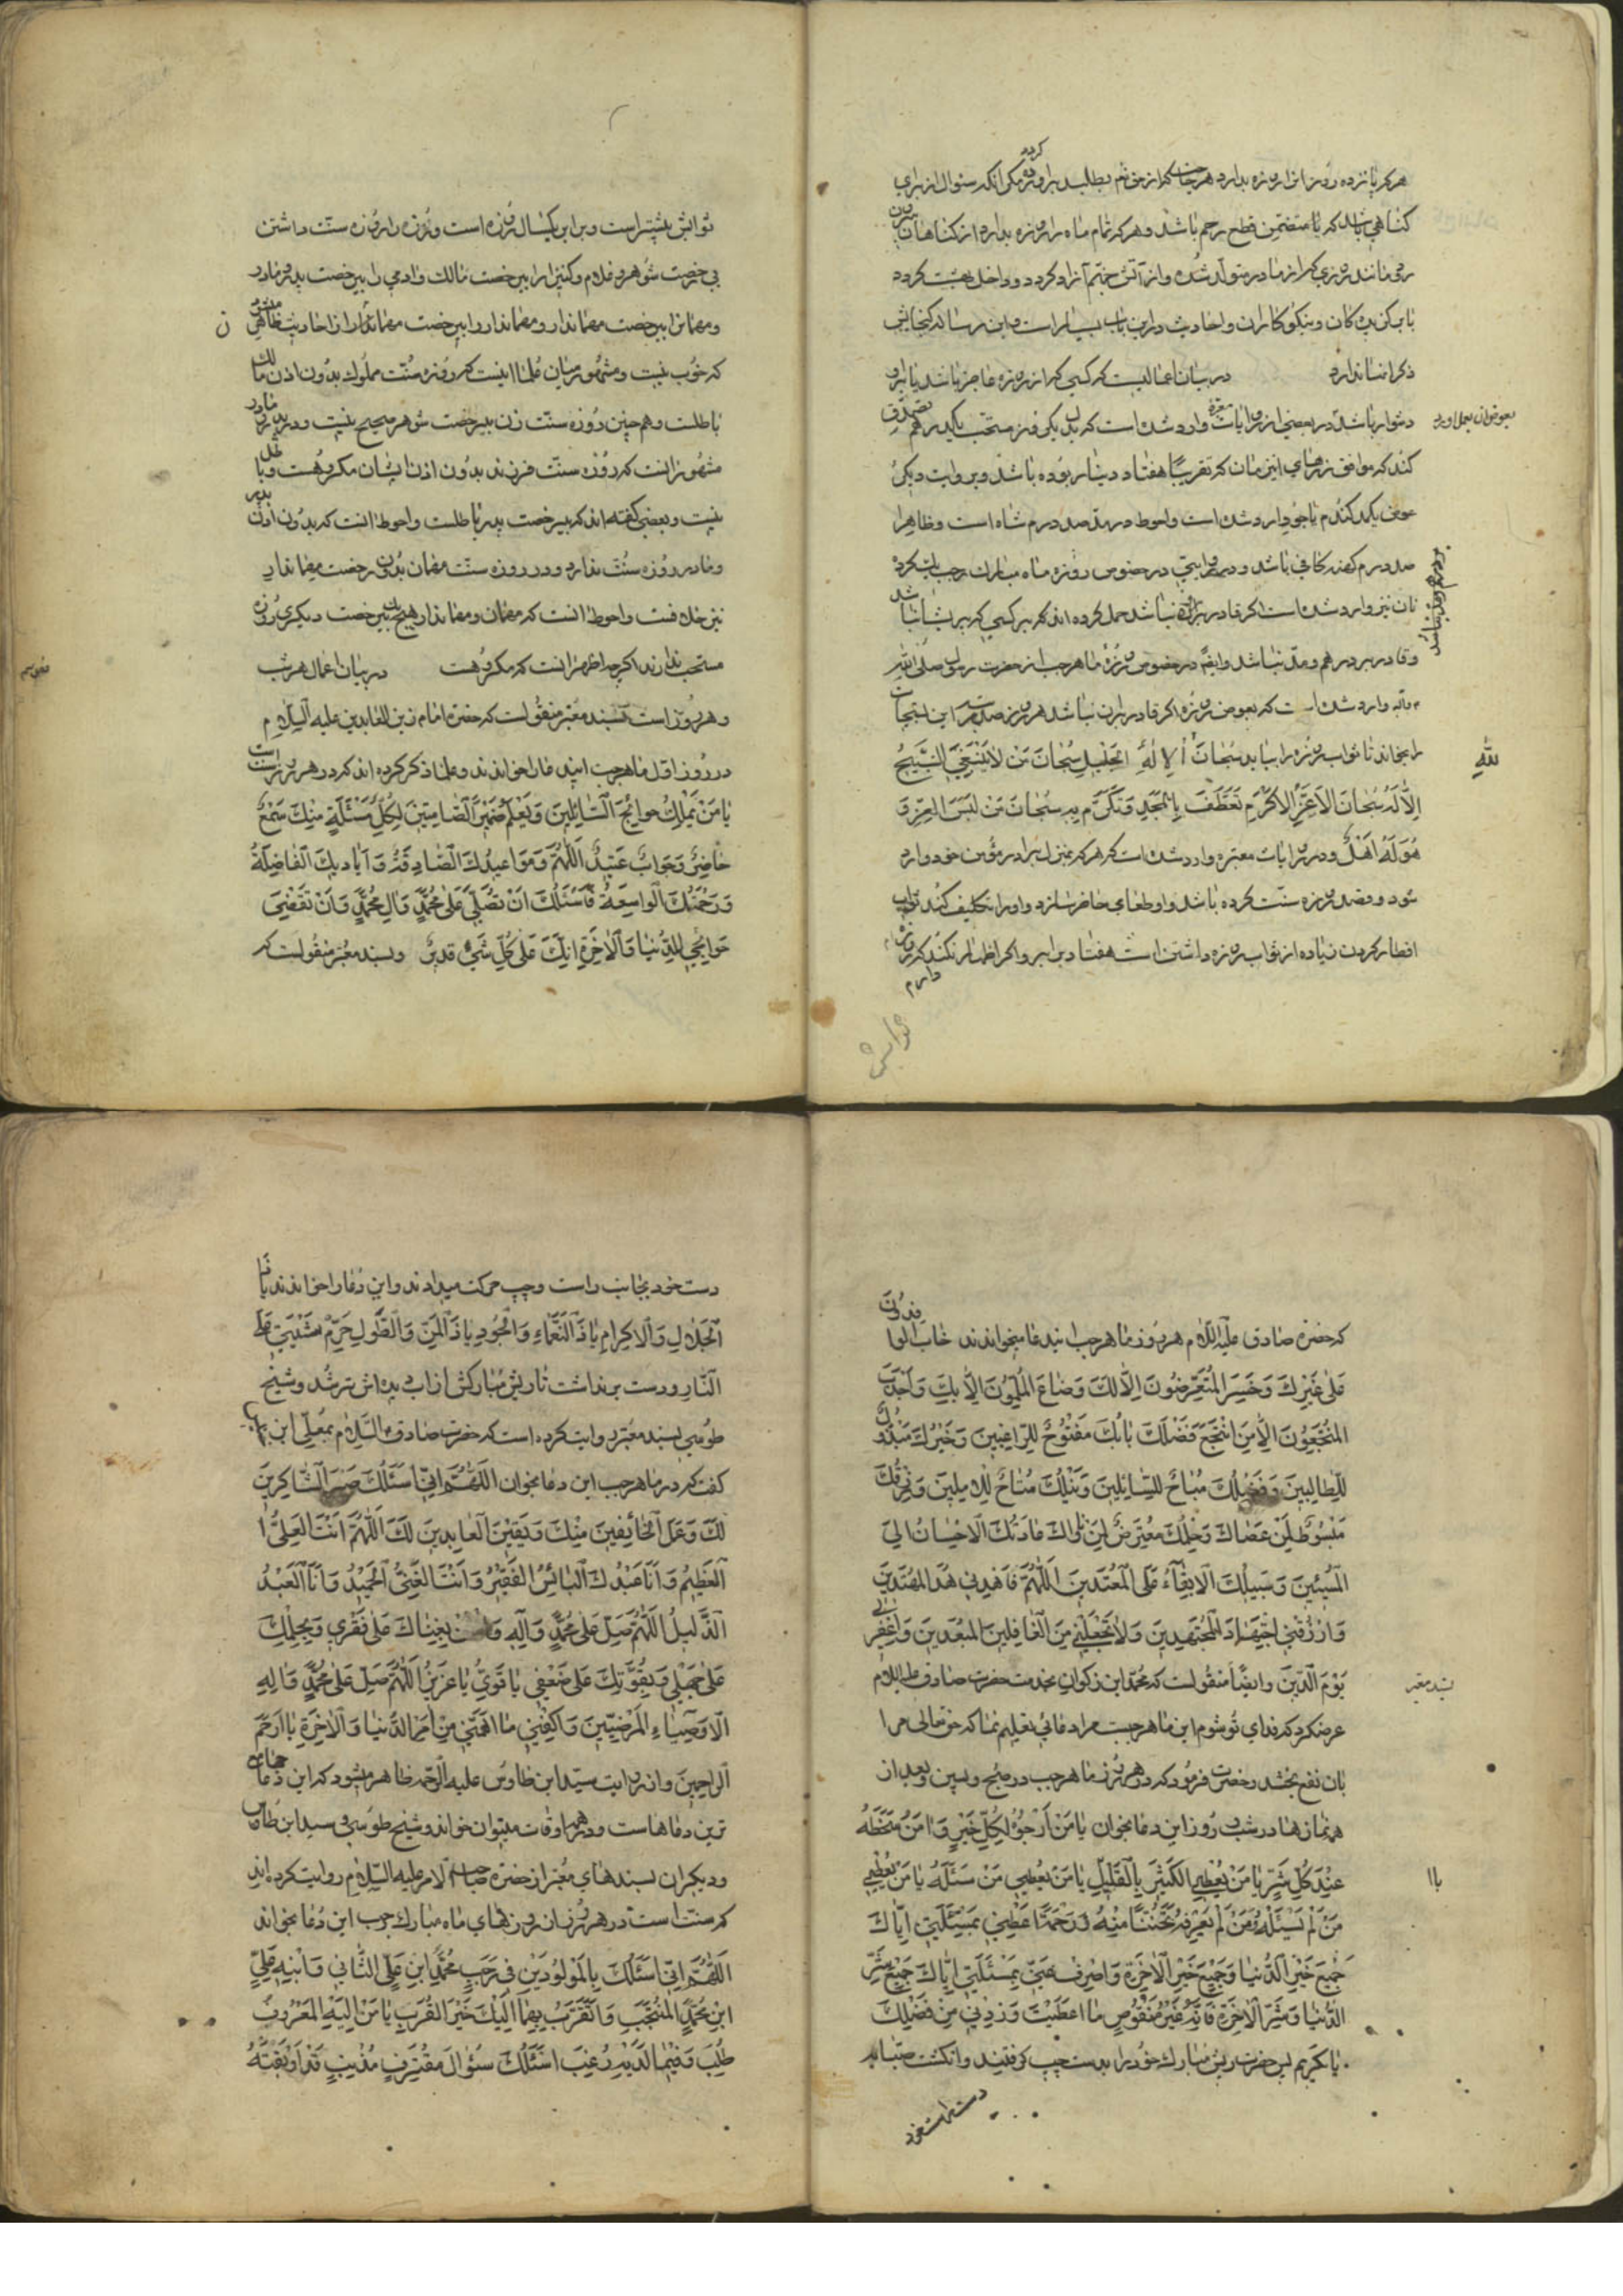 هر که پانزده روز از این ماه روزه بدارد هر حاجت که از حق تعالی بطلبد برآورده کرده مگر آنکه سئوال از برای
گناهی نماید که یا متضمن قطع رحم باشد و هر که تمام ماه را روزه بدارد از گناهان بیرون
رود مانند روزی که از مادر متولد شده و از آتش جهنم آزاد گردد و داخل بهشت گردد
با برگزیدگان و نیکوکاران و احادیث در این باب بسیار است و این رساله گنجایش
ذکر آنها ندارد در بیان اعمالیست که کسی که از روزه عاجز باشد یا برو
دشوار باشد در بعضی از روایات وارد شده است که بدل یکی روز مستحب یکدرهم تصدق
بعوض آن بعمل آورد
کند که موافق زرهای این زمان که تقریبا هفتاد دینار بوده باشد و بروایت دیگر
عوض یکمد گندم یا جو وارد شده است و احوط در مد صد درم شاه است و ظاهرا
صد درم کهنه کافی باشد و در روایتی در خصوص روزه ماه مبارک رجب یک گرده
نان نیز وارد شده است اگر قادر بر آن نباشد حمل کرده اند که بر کسی که پریشان باشد
و قادر بر درهم و مد نباشد و ایضا در خصوص روزه ماه رجب از حضرت رسول صلی الله
و آله وارد شده است که بعوض روزه اگر قادر بر آن نباشد هر روز صد مرتبه این تسبیحات
را بخواند تا ثواب روزه را بیابد سُبْحَانَ الْإِلٰهِ الْجَلِیلِ سُبْحَانَ مَنْ لَا یَنْبَغِی التَّسْبِیحُ
لله
إِلَّا لَهُ سُبْحَانَ الْأَعَزِّ الْأَکْرَمِ تَعَطَّفَ بِالْمَجْدِ وَتَکَرَّمَ بِهِ سُبْحَانَ مَنْ لَبِسَ الْعِزَّ وَ
هُوَ لَهُ أَهْلٌ و در روایات معتبره وارد شده است که هر که بمنزل برادر مؤمن خود وارد
شود و قصد روزه سنت کرده باشد و او طعامی حاضر سازد و او را تکلیف کند ثواب
افطار کردن زیاده از ثواب روزه داشتن است هفتاد برابر و اگر اظهار نکند که روزه
دارم
ثوابش
ثوابش بیشتر است و برابر یکسال روزه است و روزه دار روزه سنت داشتن
بی رخصت شوهر و غلام و کنیز را بی رخصت مالک و آدمی را بی رخصت پدر و مادر
و مهمان را بی رخصت مهماندار و مهماندار را بی رخصت مهمان از احادیث ظاهر میشود
ن
که خوب نیست و مشهور میان علما اینست که روزه سنت مملوک بدون اذن مالک
باطلست و همچنین روزه سنت زن بی رخصت شوهر صحیح نیست و در پدر و مادر
مشهور آنست که روزه سنت فرزند بدون اذن ایشان مکروهست و باطل
نیست و بعضی گفته اند که بی رخصت پدر باطلست و احوط آنست که بدون اذن پدر
و مادر روزه سنت ندارد و در روزه سنت مهمان بدون رخصت مهماندار
نیز خلافست و احوط آنست که مهمان و مهماندار هیچیک بی رخصت دیگری روزه
مستحب ندارند اگرچه اظهر آنست که مکروهست در بیان اعمال هر شب
و هر روز است بسند معتبر منقولست که حضرت امام زین العابدین علیه السلام
در روز اول ماه رجب این دعا را خواندند و علما ذکر کرده اند که در هر روز سنت است
یَا مَنْ یَمْلِکُ حَوَائِجَ السَّائِلِینَ وَیَعْلَمُ ضَمِیرَ الصَّامِتِینَ لِکُلِّ مَسْئَلَةٍ مِنْکَ سَمْعٌ
حَاضِرٌ وَجَوَابٌ عَتِیدٌ اللَّهُمَّ وَمَوَاعِیدُکَ الصَّادِقَةُ وَأَیَادِیکَ الْفَاضِلَةُ
وَرَحْمَتُکَ الْوَاسِعَةُ فَأَسْئَلُکَ أَنْ تُصَلِّیَ عَلَى مُحَمَّدٍ وَآلِ مُحَمَّدٍ وَأَنْ تَقْضِیَ
حَوَائِجِی لِلدُّنْیَا وَالْآخِرَةِ إِنَّکَ عَلَى کُلِّ شَیْءٍ قَدِیرٌ و بسند معتبر منقولست که
که حضرت صادق علیه السلام هر روز ماه رجب این دعا میخواندند خَابَ الْوَافِدُونَ
عَلَى غَیْرِکَ وَخَسِرَ الْمُتَعَرِّضُونَ إِلَّا لَکَ وَضَاعَ الْمُلِمُّونَ إِلَّا بِکَ وَأَجْدَبَ
الْمُنْتَجِعُونَ إِلَّا مَنِ انْتَجَعَ فَضْلَکَ بَابُکَ مَفْتُوحٌ لِلرَّاغِبِینَ وَخَیْرُکَ مَبْذُولٌ
لِلطَّالِبِینَ وَفَضْلُکَ مُبَاحٌ لِلسَّائِلِینَ وَنَیْلُکَ مُتَاحٌ لِلْآمِلِینَ وَرِزْقُکَ
مَبْسُوطٌ لِمَنْ عَصَاکَ وَحِلْمُکَ مُعْتَرِضٌ لِمَنْ نَاوَاکَ عَادَتُکَ الْإِحْسَانُ إِلَى
الْمُسِیئِینَ وَسَبِیلُکَ الْإِبْقَاءُ عَلَى الْمُعْتَدِینَ اللَّهُمَّ فَاهْدِنِی هُدَى الْمُهْتَدِینَ
وَارْزُقْنِی اجْتِهَادَ الْمُجْتَهِدِینَ وَلَا تَجْعَلْنِی مِنَ الْغَافِلِینَ الْمُبْعَدِینَ وَاغْفِرْ لِی
یَوْمَ الدِّینِ و ایضا منقولست که محمد ابن ذکوان بخدمت حضرت صادق علیه السلام
بسند معتبر
عرض کرد که فدای تو شوم این ماه رجبست مرا دعائی تعلیم نما که حق تعالی مرا
بآن نفع بخشد حضرت فرمود که در هر روز ماه رجب در صبح و پسین و بعد از
نمازها در شب و روز این دعا بخوان یَا مَنْ أَرْجُوهُ لِکُلِّ خَیْرٍ وَآمَنُ سَخَطَهُ
عِنْدَ کُلِّ شَرٍّ یَا مَنْ یُعْطِی الْکَثِیرَ بِالْقَلِیلِ یَا مَنْ یُعْطِی مَنْ سَئَلَهُ یَا مَنْ یُعْطِی
مَنْ لَمْ یَسْئَلْهُ وَمَنْ لَمْ یَعْرِفْهُ تَحَنُّنًا مِنْهُ وَرَحْمَةً أَعْطِنِی بِمَسْئَلَتِی إِیَّاکَ
جَمِیعَ خَیْرِ الدُّنْیَا وَجَمِیعَ خَیْرِ الْآخِرَةِ وَاصْرِفْ عَنِّی بِمَسْئَلَتِی إِیَّاکَ جَمِیعَ شَرِّ
الدُّنْیَا وَشَرِّ الْآخِرَةِ فَإِنَّهُ غَیْرُ مَنْقُوصٍ مَا أَعْطَیْتَ وَزِدْنِی مِنْ فَضْلِکَ
یَا کَرِیمُ پس حضرت ریش مبارک خود را بدست چپ گرفتند و انگشت سبابه
دست راست خود
دست خود بجانب راست و چپ حرکت میدادند و این دعا را خواندند یَا ذَا
الْجَلَالِ وَالْإِکْرَامِ یَا ذَا النَّعْمَاءِ وَالْجُودِ یَا ذَا الْمَنِّ وَالطَّوْلِ حَرِّمْ شَیْبَتِی عَلَى
النَّارِ و دست برنداشت تا ریش مبارکش از آب دیده اش تر شد و شیخ
طوسی بسند معتبر روایت کرده است که حضرت صادق علیه السلام بمعلی ابن خنیس
گفت که در ماه رجب این دعا بخوان اللَّهُمَّ إِنِّی أَسْئَلُکَ صَبْرَ الشَّاکِرِینَ
لَکَ وَعَمَلَ الْخَائِفِینَ مِنْکَ وَیَقِینَ الْعَابِدِینَ لَکَ اللَّهُمَّ أَنْتَ الْعَلِیُّ
الْعَظِیمُ وَأَنَا عَبْدُکَ الْبَائِسُ الْفَقِیرُ وَأَنْتَ الْغَنِیُّ الْحَمِیدُ وَأَنَا الْعَبْدُ
الذَّلِیلُ اللَّهُمَّ صَلِّ عَلَى مُحَمَّدٍ وَآلِهِ وَامْنُنْ بِغِنَاکَ عَلَى فَقْرِی وَبِحِلْمِکَ
عَلَى جَهْلِی وَبِقُوَّتِکَ عَلَى ضَعْفِی یَا قَوِیُّ یَا عَزِیزُ اللَّهُمَّ صَلِّ عَلَى مُحَمَّدٍ وَآلِهِ
الْأَوْصِیَاءِ الْمَرْضِیِّینَ وَاکْفِنِی مَا أَهَمَّنِی مِنْ أَمْرِ الدُّنْیَا وَالْآخِرَةِ یَا أَرْحَمَ
الرَّاحِمِینَ و از روایت سید ابن طاوس علیه الرحمه ظاهر میشود که این دعا جامع
ترین دعاهاست و در همه اوقات میتوان خواند و شیخ طوسی و سید ابن طاوس
و دیگران بسندهای معتبر از حضرت صاحب الامر علیه السلام روایت کرده اند
که سنت است در هر روز از روزهای ماه مبارک رجب این دعا بخواند
اللَّهُمَّ إِنِّی أَسْئَلُکَ بِالْمَوْلُودَیْنِ فِی رَجَبٍ مُحَمَّدِ ابْنِ عَلِیٍّ الثَّانِی وَابْنِهِ عَلِیِّ
ابْنِ مُحَمَّدٍ الْمُنْتَجَبِ وَأَتَقَرَّبُ بِهِمَا إِلَیْکَ خَیْرَ الْقُرَبِ یَا مَنْ إِلَیْهِ الْمَعْرُوفُ
طُلِبَ وَفِیمَا لَدَیْهِ رُغِبَ أَسْئَلُکَ سُؤَالَ مُقْتَرِفٍ مُذْنِبٍ قَدْ أَوْبَقَتْهُ